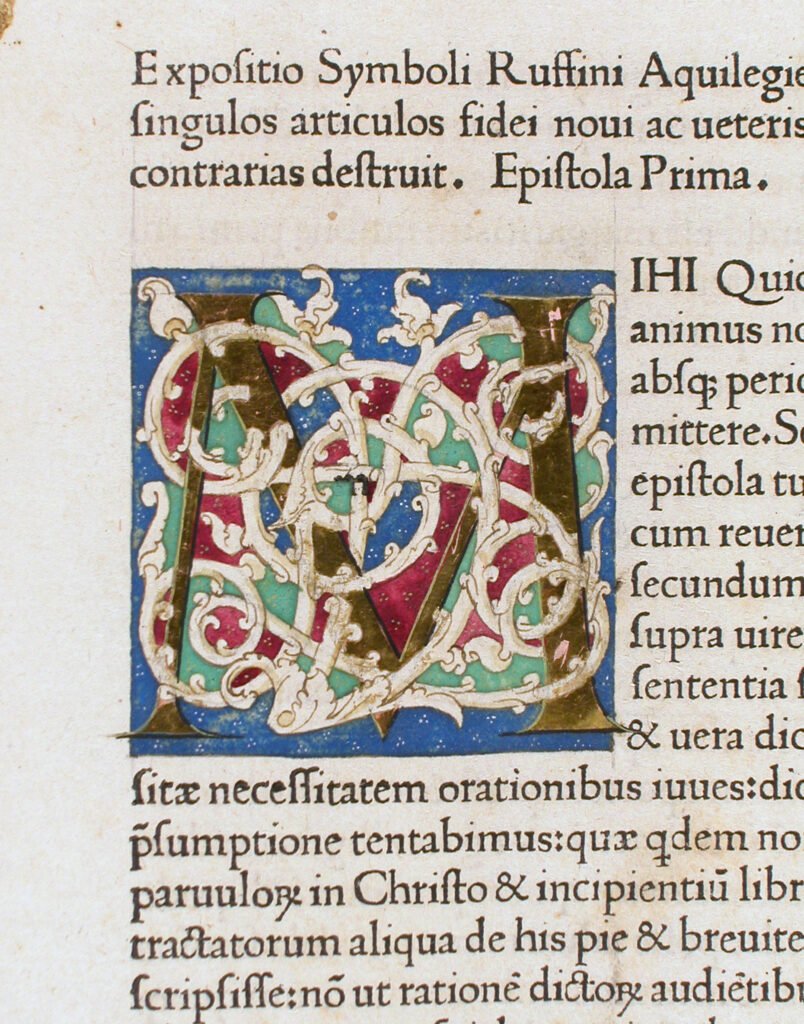 Expoſitio Symboli Ruffini Aquilegie
ſingulos articulos fidei noui ac ueteris
contrarias deſtruit. Epiſtola Prima.
M
IHI Quid
animus no
abſqꝫ peric
mittere. Se
epiſtola tu
cum reuer
ſecundum
ſupra uire
ſententia
& uera dic
ſitæ neceſſitatem orationibus iuues: dic
p̃ſumptione tentabimus: quæ qdem no
paruuloꝝ in Chriſto & incipientiū libr
tractatorum aliqua de his pie & breuite
ſcripſiſſe: nō ut rationē dictoꝝ audiētibu